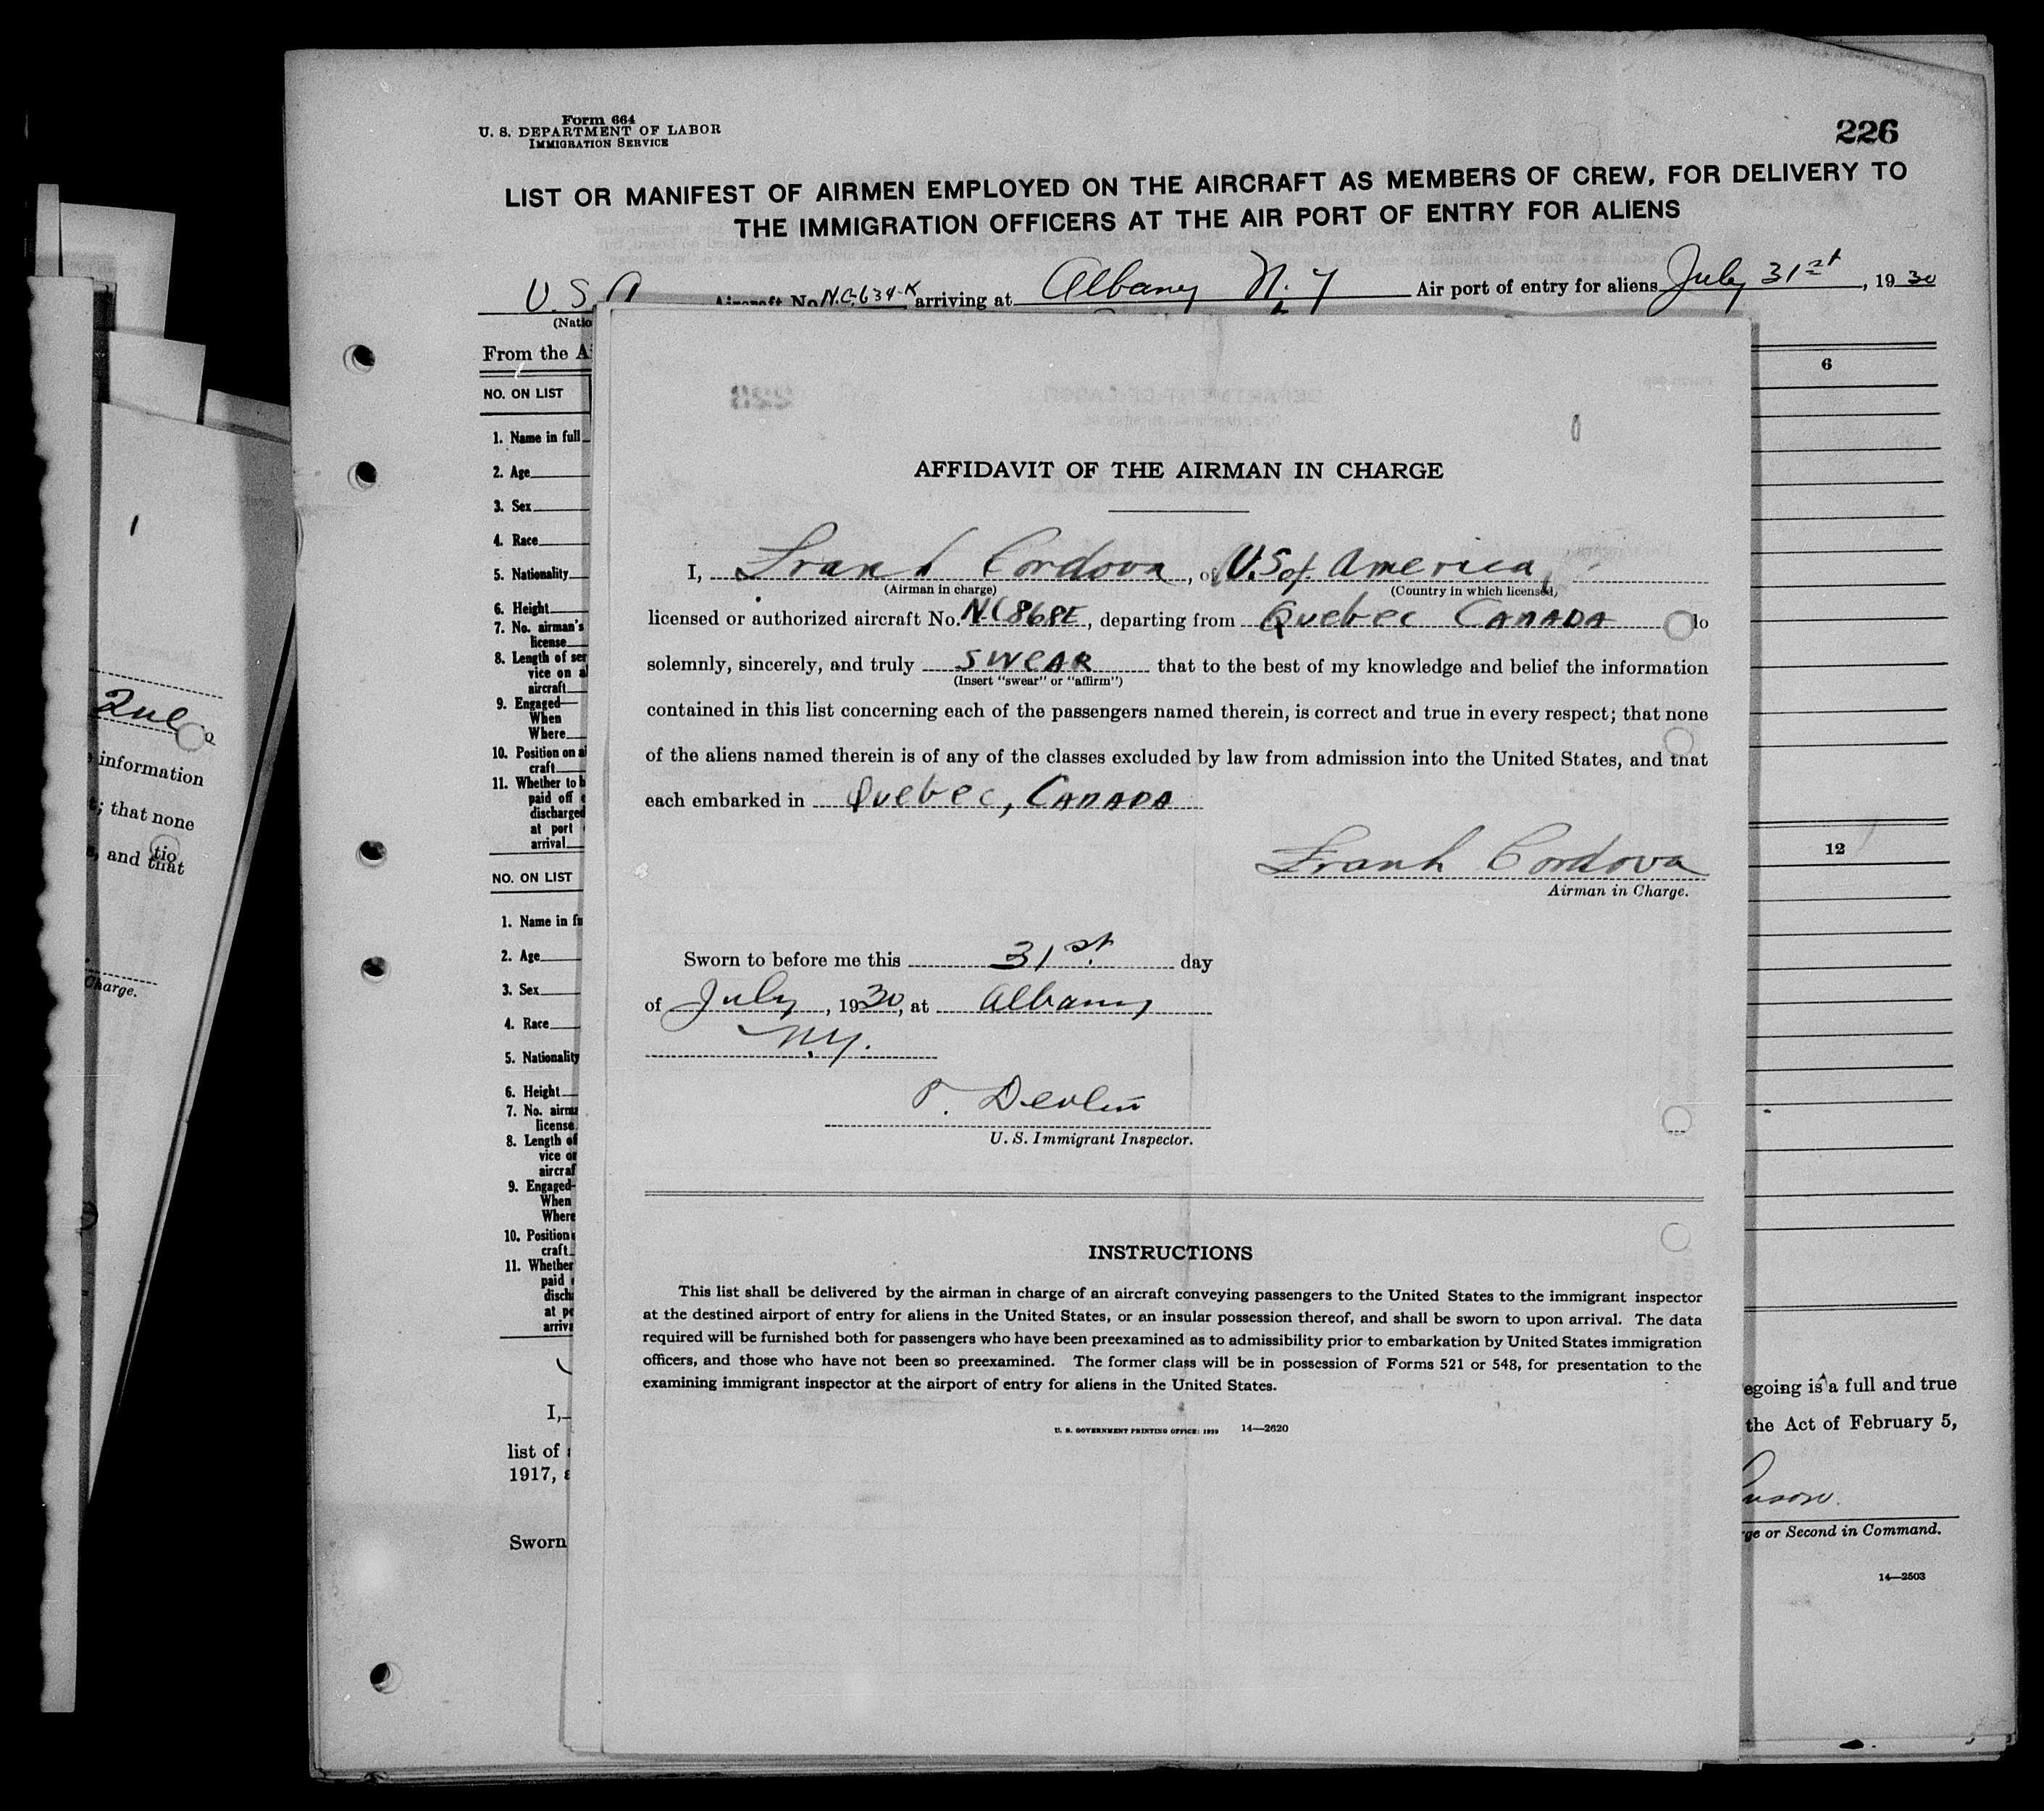 Form 664
U. S. DEPARTMENT OF LABOR
IMMIGRATION SERVICE
226
LIST OR MANIFEST OF AIRMEN EMPLOYED ON THE AIRCRAFT AS MEMBERS OF CREW, FOR DELIVERY TO
THE IMMIGRATION OFFICERS AT THE AIR PORT OF ENTRY FOR ALIENS
U. S. A Aircraft No. N.C-634-K arriving at Albany N.Y Air port of entry for aliens July 31st, 1930
(Natio
From the A
NO. ON LIST
6
1. Name in full
2. Age
3. Sex
4. Race
5. Nationality
6. Height
7. No. airman's
license
8. Length of ser
vice on a
aircraft
9. Engaged—
When
Where
10. Position on ai
craft
11. Whether to b
paid off
discharged
at port
arrival
NO. ON LIST
12
1. Name in fu
2. Age
3. Sex
4. Race
5. Nationality
6. Height
7. No. airma
license
8. Length of
vice or
aircraf
9. Engaged—
When
Where
10. Position
craft
11. Whether
paid
disch
at po
arriva
I,
list of
1917, a
Sworn
AFFIDAVIT OF THE AIRMAN IN CHARGE
I, Frank Cordova, of U.S of America,
(Airman in charge) (Country in which licensed)
licensed or authorized aircraft No. NC868E, departing from Quebec CANADA do
solemnly, sincerely, and truly SWEAR that to the best of my knowledge and belief the information
(Insert "swear" or "affirm")
contained in this list concerning each of the passengers named therein, is correct and true in every respect; that none
of the aliens named therein is of any of the classes excluded by law from admission into the United States, and that
each embarked in Quebec, CANADA
Frank Cordova
Airman in Charge.
Sworn to before me this 31st. day
of July, 1930, at Albany
N.Y.
P. Devlin
U. S. Immigrant Inspector.
INSTRUCTIONS
This list shall be delivered by the airman in charge of an aircraft conveying passengers to the United States to the immigrant inspector
at the destined airport of entry for aliens in the United States, or an insular possession thereof, and shall be sworn to upon arrival. The data
required will be furnished both for passengers who have been preexamined as to admissibility prior to embarkation by United States immigration
officers, and those who have not been so preexamined. The former class will be in possession of Forms 521 or 548, for presentation to the
examining immigrant inspector at the airport of entry for aliens in the United States.
U. S. GOVERNMENT PRINTING OFFICE: 1929 14—2620
egoing is a full and true
the Act of February 5,
rge or Second in Command.
14—2503
1
Que
information
; that none
tio
, and that
Charge.